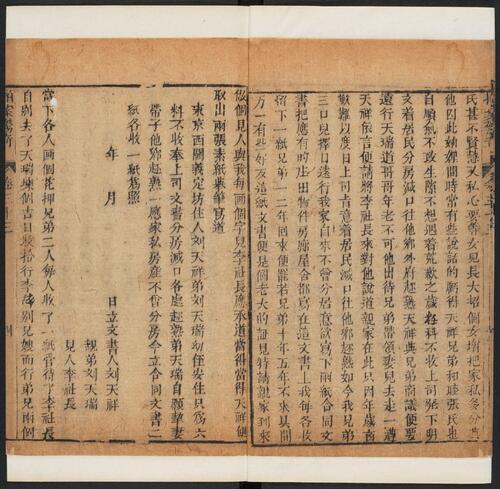 氏甚不賢慧又私心要等女兒長大招個女壻把家私多分與
他因此妯娌間時常有些說話的虧得天祥兄弟和睦張氏也
自順氣不致生隙不想遇着荒歉之歲六料不收上司發下明
文着居民分房減口往他鄉外府趁熟天祥與兄弟商議便要
遠行天瑞道哥哥年老不可他出待兄弟帶領妻兒去走一遭
天祥依言便請將李社長來對他說道親家在此只因年歲荒
歉難以度日上司旨意着居民減口往他鄉趁熟如今我兄弟
三口兒擇日遠行我家自來不曾分居意欲寫下兩紙合同文
書把應有的庄田物件房廊屋舍都寫在這文書上我每各收
留下一紙兄弟一二年回來便罷若兄弟十年五年不來其間
萬一有些好歹這紙文書便是個老大的証見特請親家到來
做個見人與我每畫個字兒李社長應承道當得當得天祥便
取出兩張素紙舉筆寫道
東京西關義定坊住人劉天祥弟劉天瑞幼侄安住只爲六
料不收奉上司文書分房減口各處趁熟弟天瑞自願挈妻
帶子他鄉趁熟一應家私房産不曾分另今立合同文書二
紙各收一紙爲照
年　月　日立文書人劉天祥
親弟劉天瑞
見人李社長
當下各人畫個花押兄弟二人每人收了一紙管待了李社長
自別去了天瑞揀個吉日裝拾行李辭別兄嫂而行弟兄兩個